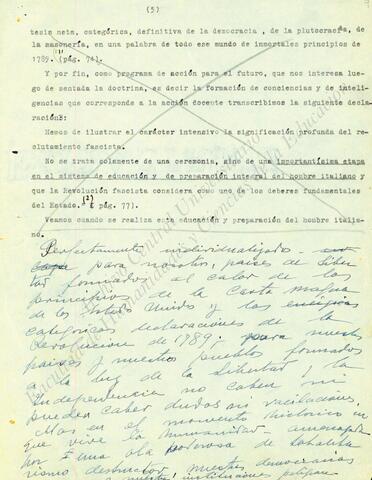 (5)
tesis neta, categórica, definitiva de la democracia, de la plutocracia, de
la masonería, en una palabra de todo ese mundo de inmortales principios de
1789. (pág. 74).
Y por fin, como programa de acción para el futuro, que nos interesa
luego de sentada la doctrina, es decir la formación de conciencias y de inteli-
gencias que corresponde a la acción docente transcribimos la siguiente decla-
ración:
Hemos de ilustrar el carácter intensivo la significación profunda del re-
clutamiento fascista.
No se trata solamente de una ceremonia, sino de una importantísima etapa
en el sistema de educación y de preparación integral del hombre italiano y
que la Revolución fascista considera como uno de los deberes fundamentales
del Estado. (2) pág. 77).
Veamos cuando se realiza esta educación y preparación del hombre italia-
no.
Perfectamente individualizado
para nuestros países de liber
tad formados al calor de los
principios de la Carta magna
de los Estados Unidos y las enérgicas
categóricas declaraciones de la
Revolución de 1789; para nuestros
países y nuestros pueblos formados
a la luz de la Libertad y la
Independencia no caben ni
pueden caber dudas ni vacilaciones.
Mas en el momento histórico en
que vive la humanidad amenazada
por una ola poderosa de totalita
rismo destructor, nuestras democracias
nuestras instituciones